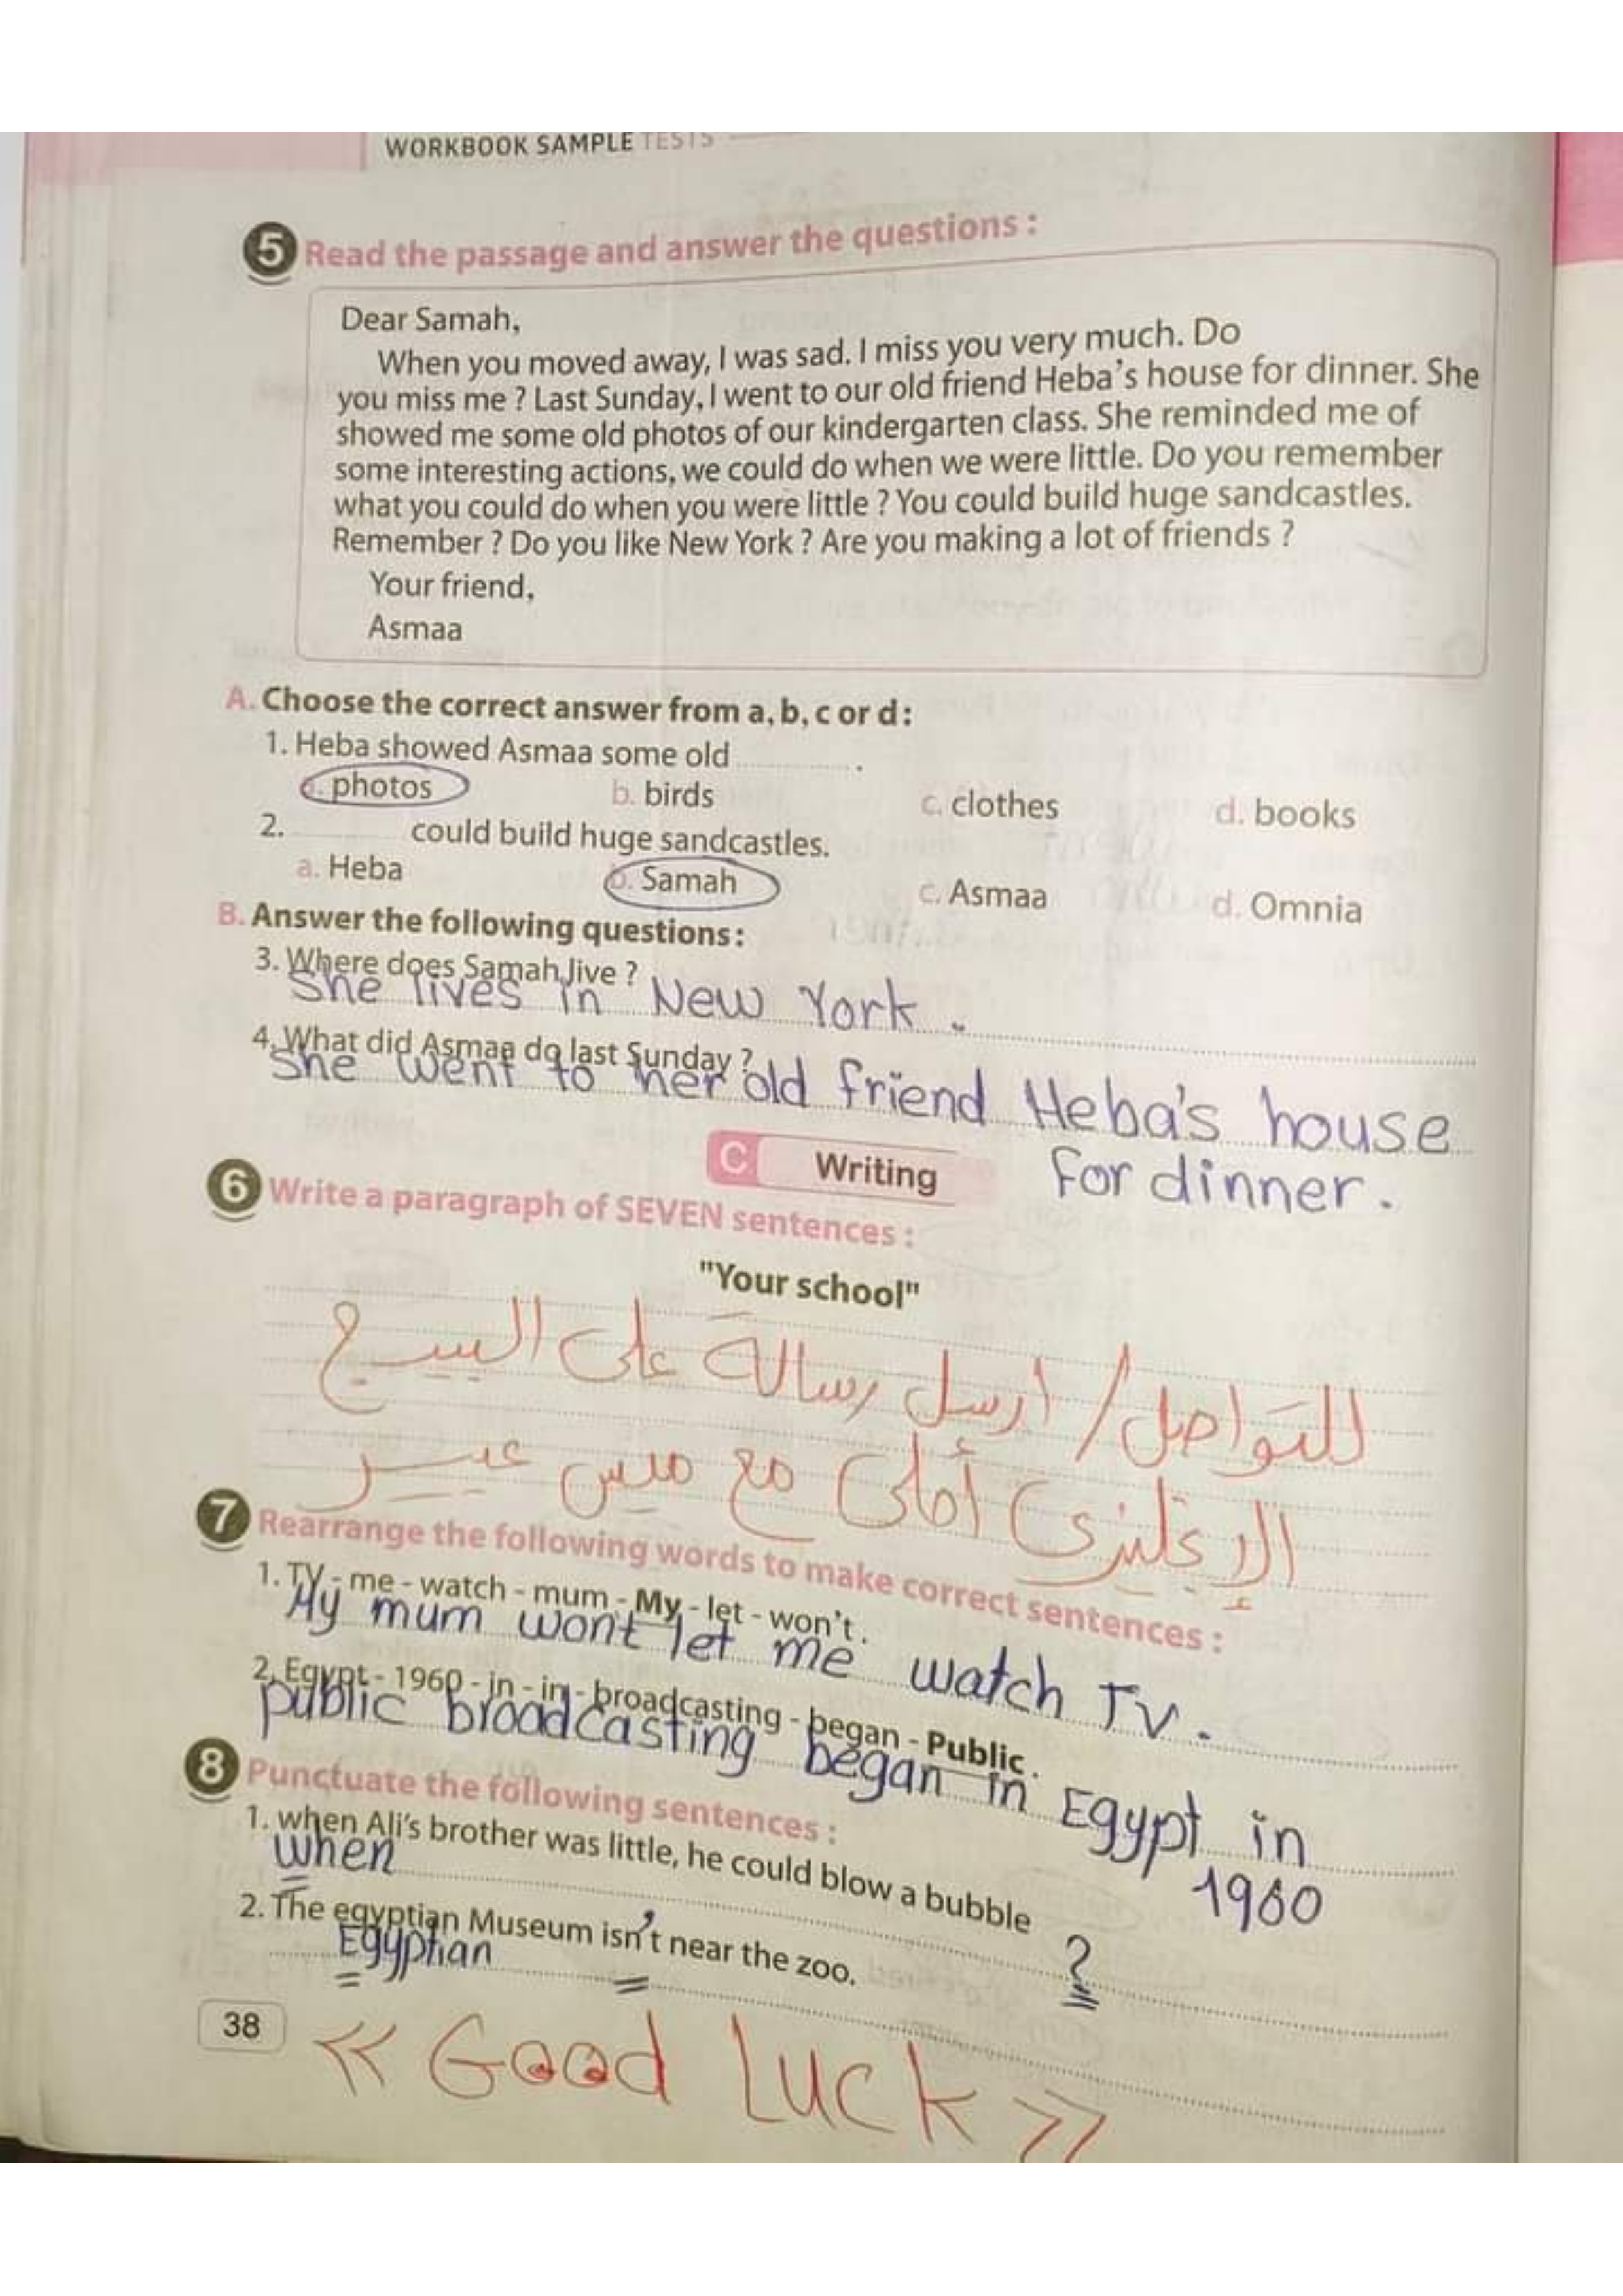 WORKBOOK SAMPLE TESTS
5 Read the passage and answer the questions :
Dear Samah,
When you moved away, I was sad. I miss you very much. Do
you miss me ? Last Sunday, I went to our old friend Heba's house for dinner. She
showed me some old photos of our kindergarten class. She reminded me of
some interesting actions, we could do when we were little. Do you remember
what you could do when you were little ? You could build huge sandcastles.
Remember ? Do you like New York ? Are you making a lot of friends ?
Your friend,
Asmaa
A. Choose the correct answer from a, b, c or d :
1. Heba showed Asmaa some old ............ .
a. photos b. birds c. clothes d. books
2. ............ could build huge sandcastles.
a. Heba b. Samah c. Asmaa d. Omnia
B. Answer the following questions :
3. Where does Samah live ?
She lives in New York .
4. What did Asmaa do last Sunday ?
She went to her old friend Heba's house
For dinner .
C Writing
6 Write a paragraph of SEVEN sentences :
"Your school"
للتواصل / ارسل رسالة على البيدج
الإنجليزى أحلى مع ميس عبير
7 Rearrange the following words to make correct sentences :
1. TV - me - watch - mum - My - let - won't .
My mum wont let me watch TV .
2. Egypt - 1960 - in - in - broadcasting - began - Public .
public broadcasting began in Egypt in
1960
8 Punctuate the following sentences :
1. when Ali's brother was little, he could blow a bubble
When ?
2. The egyptian Museum isn't near the zoo.
Egyptian
38
<< Good Luck >>